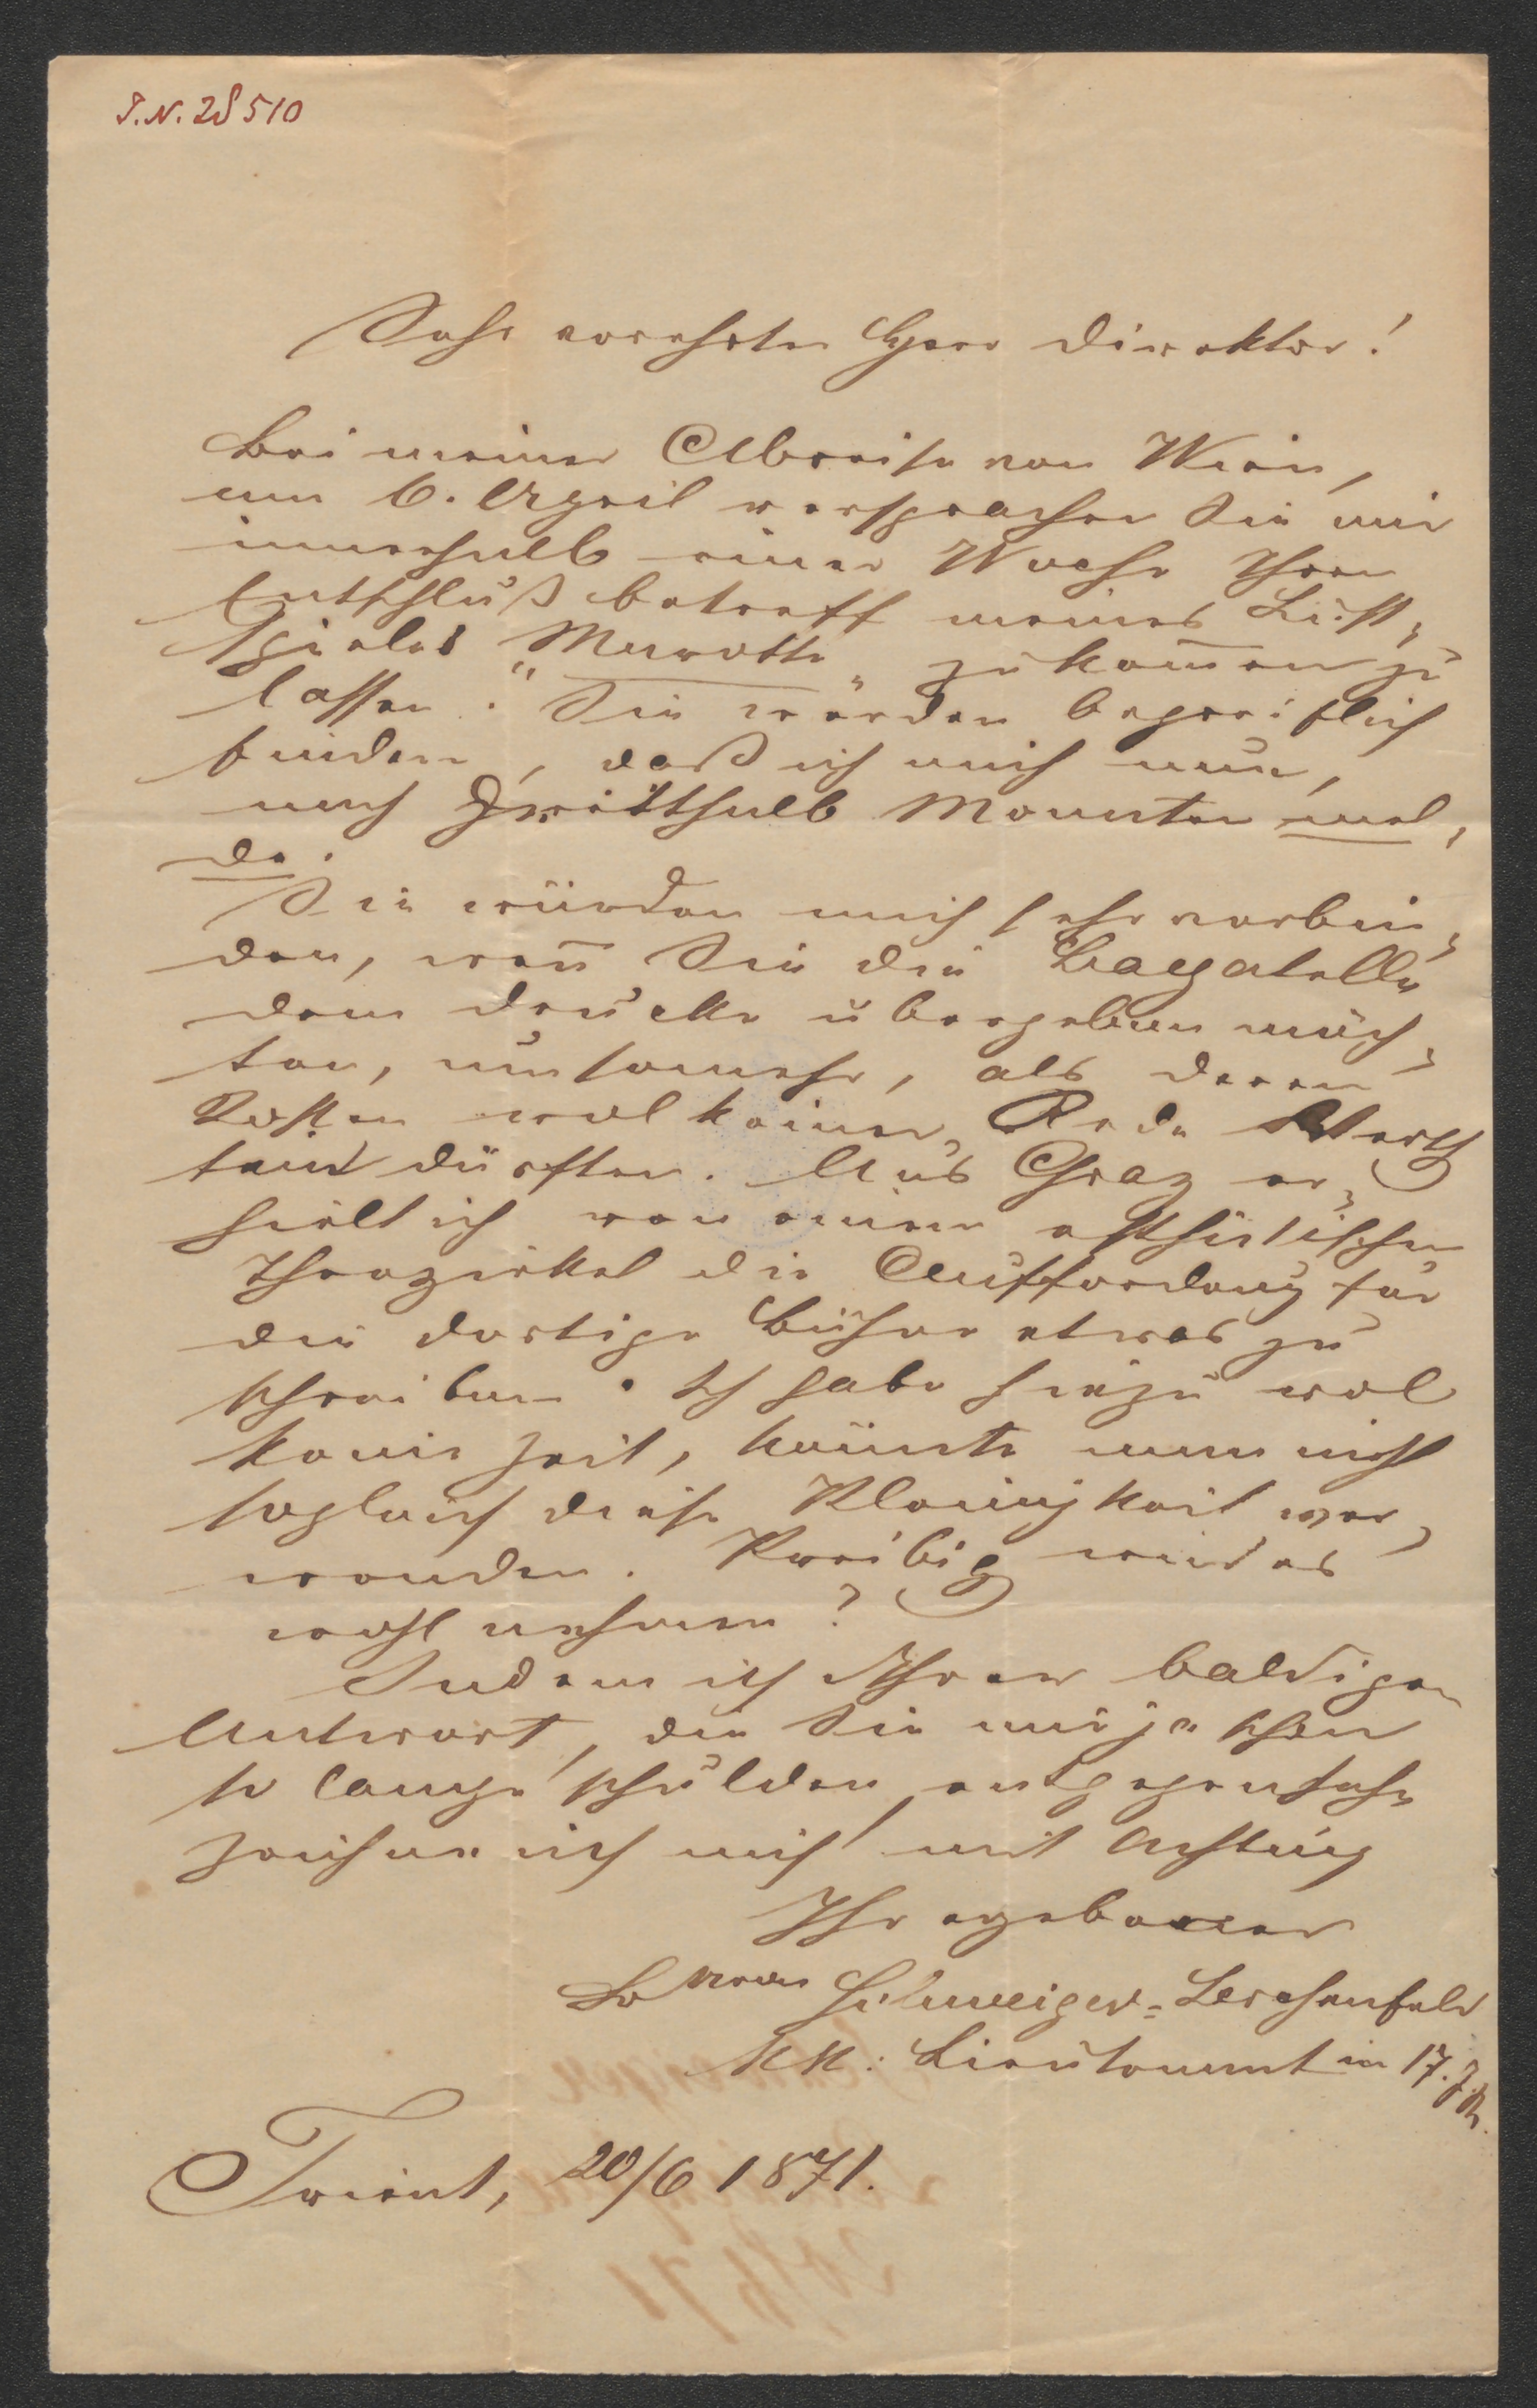 I.N. 28510
Sehr verehrter Herr Direktor!
Bei meiner Abreise von Wien,
am 6. April versprachen Sie mir
innerhalb einer Woche Ihren
Entschluß betreff meines Lust-
spieles „Marotte„ zukom̄en zu
lassen. Sie werden begreiflich
finden, daß ich mich nun,
nach Dritthalb Monaten mel-
de.
Sie würden mich sehr verbin-
den, wen̄ Sie die Bagatelle
dem Drucke übergeben möch-
ten, umsomehr, als deren
Kosten wol keiner Rede Werth
sein dürften. Aus Graz er-
hielt ich von einem esthetischen
Theezirkel die Aufforderung für
die dortige Bühne etwas zu
schreiben. Ich habe hiezu wol
keine Zeit, könnte man nicht
sogleich diese Kleinigkeit ver-
wenden. Kreibig wird es
wohl nehmen?
Indem ich Ihrer baldigen
Antwort, die Sie mir ja schon
so lange schulden entgegensehe
zeichne ich mich mit Achtung
Ihr ergebener
Br von Schweiger-Lerchenfeld
KK: Lieutenant in 17. J.R.
Trient, 20/6 1871.